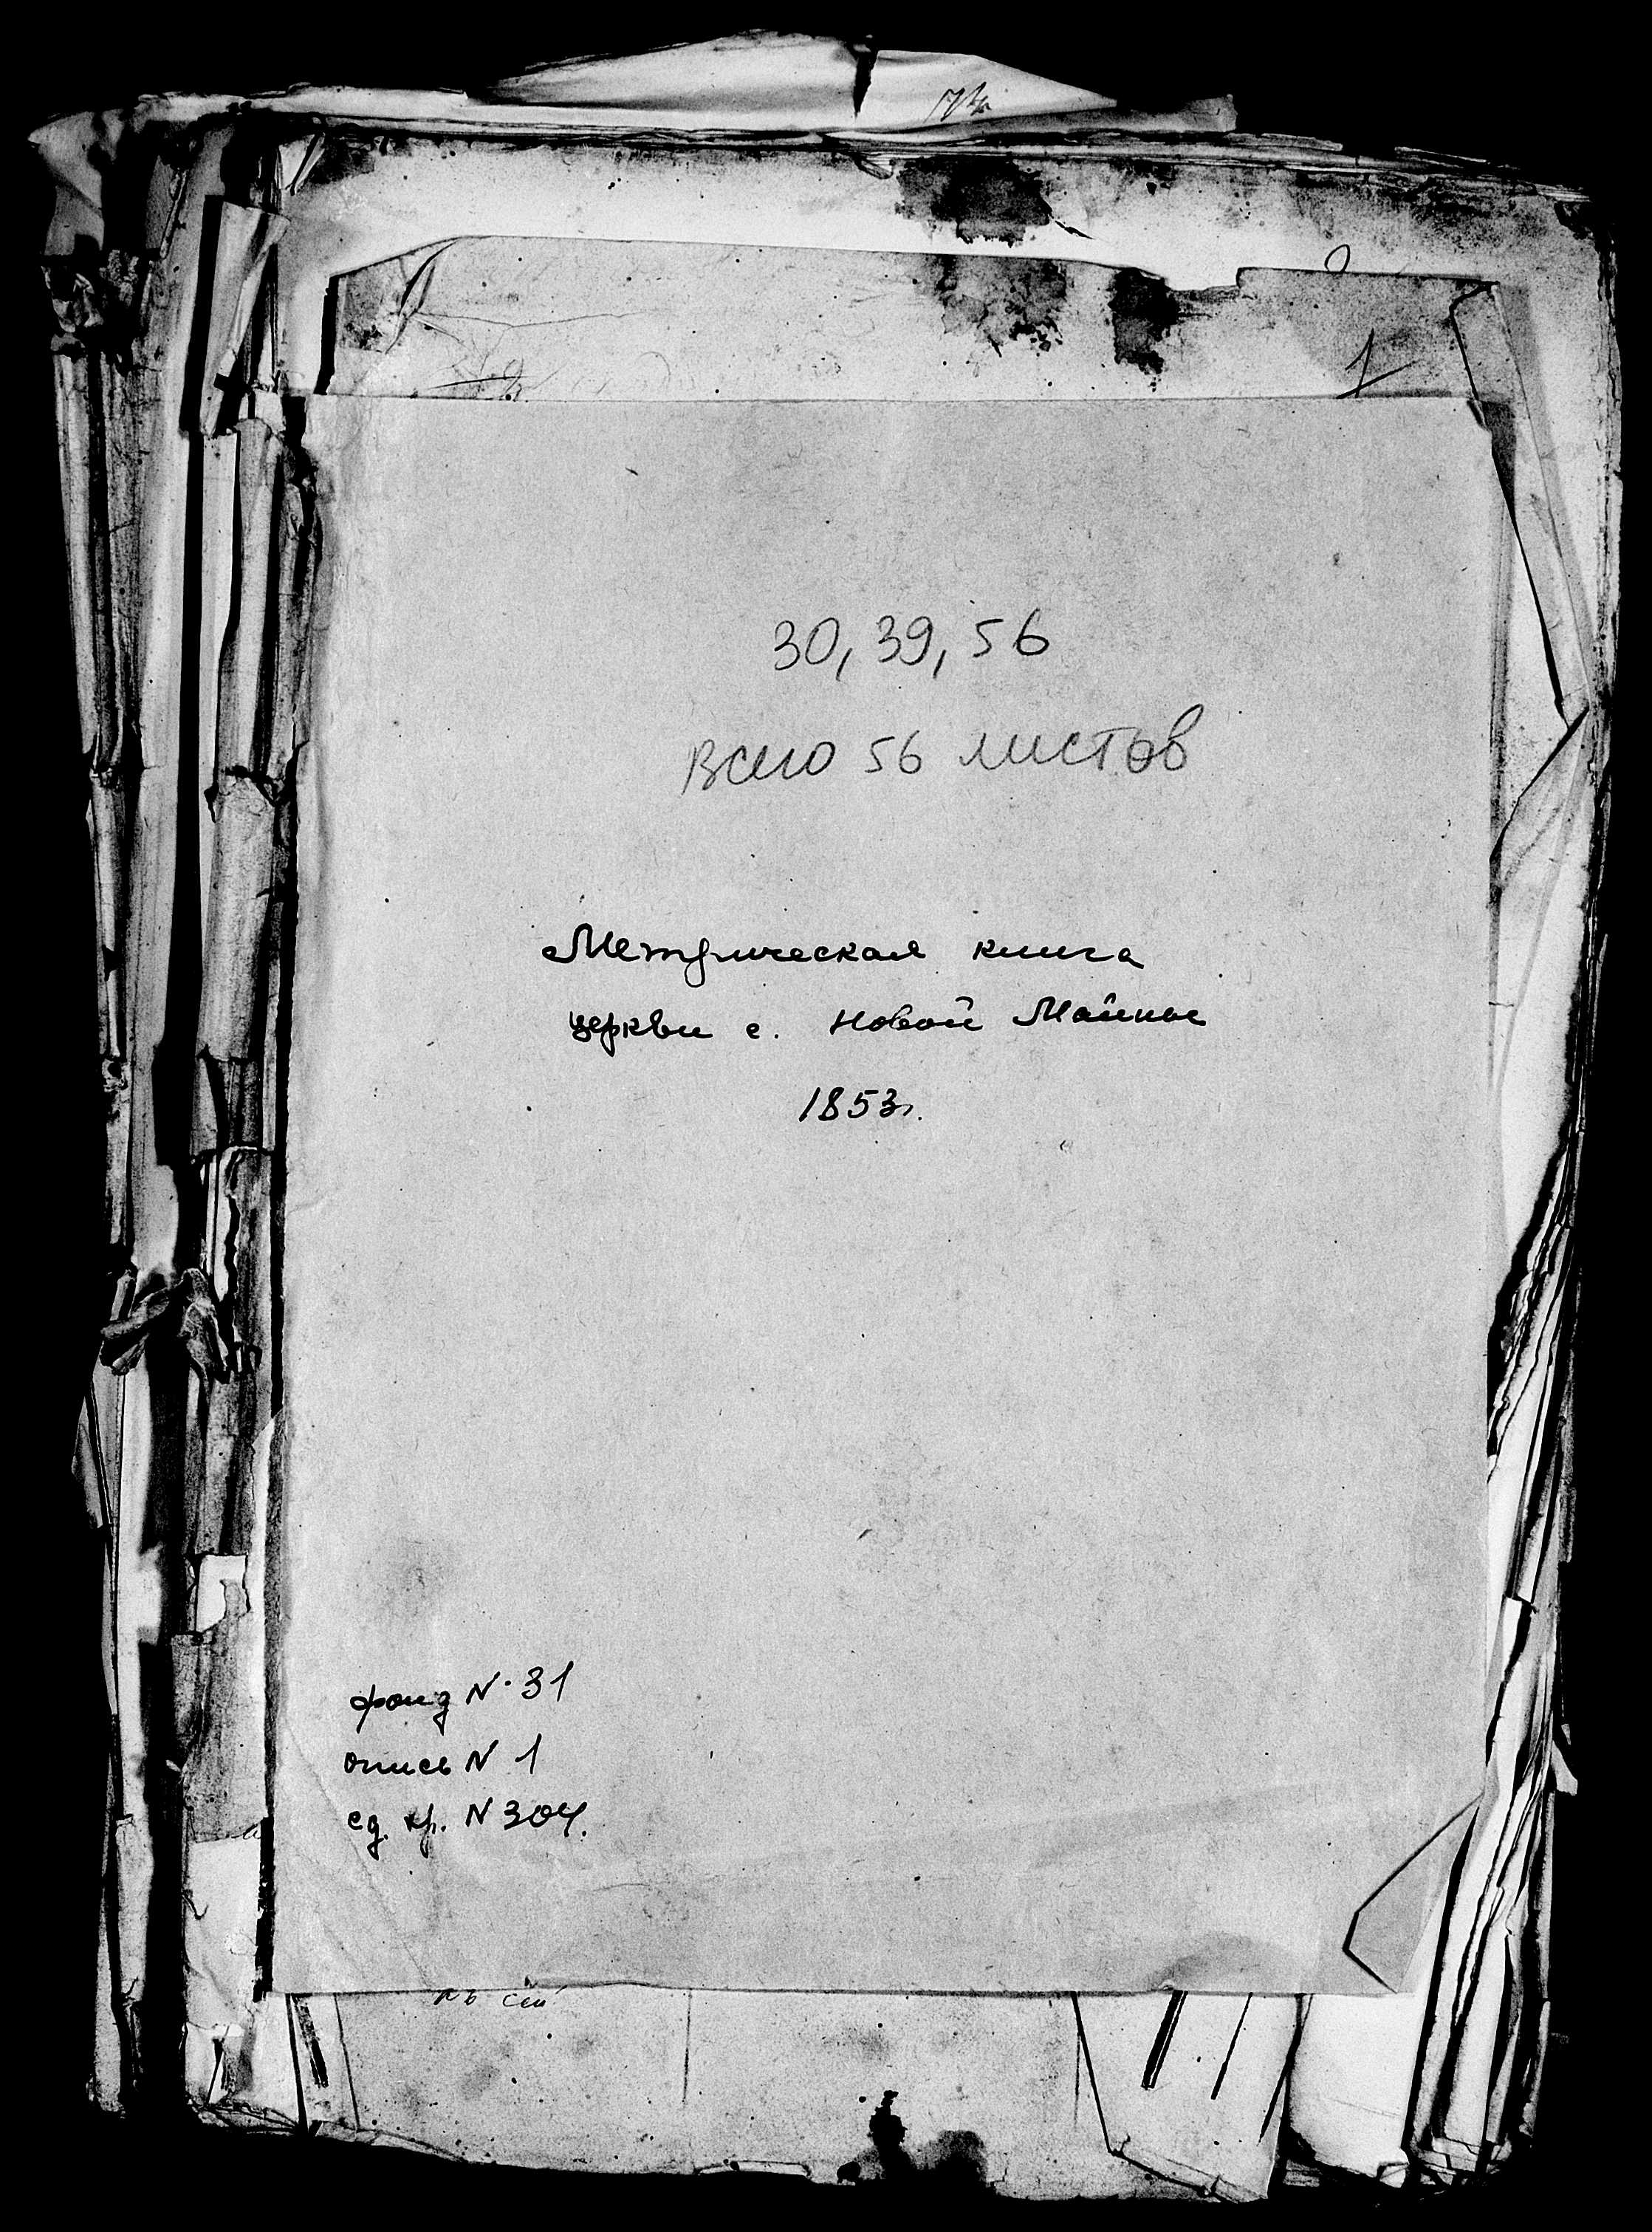 1
30, 39, 56
всего 56 листов
Метрическая книга
церкви с. Новой Майны
1853г.
фонд N 31
опись N 1
ед. хр. N 304.